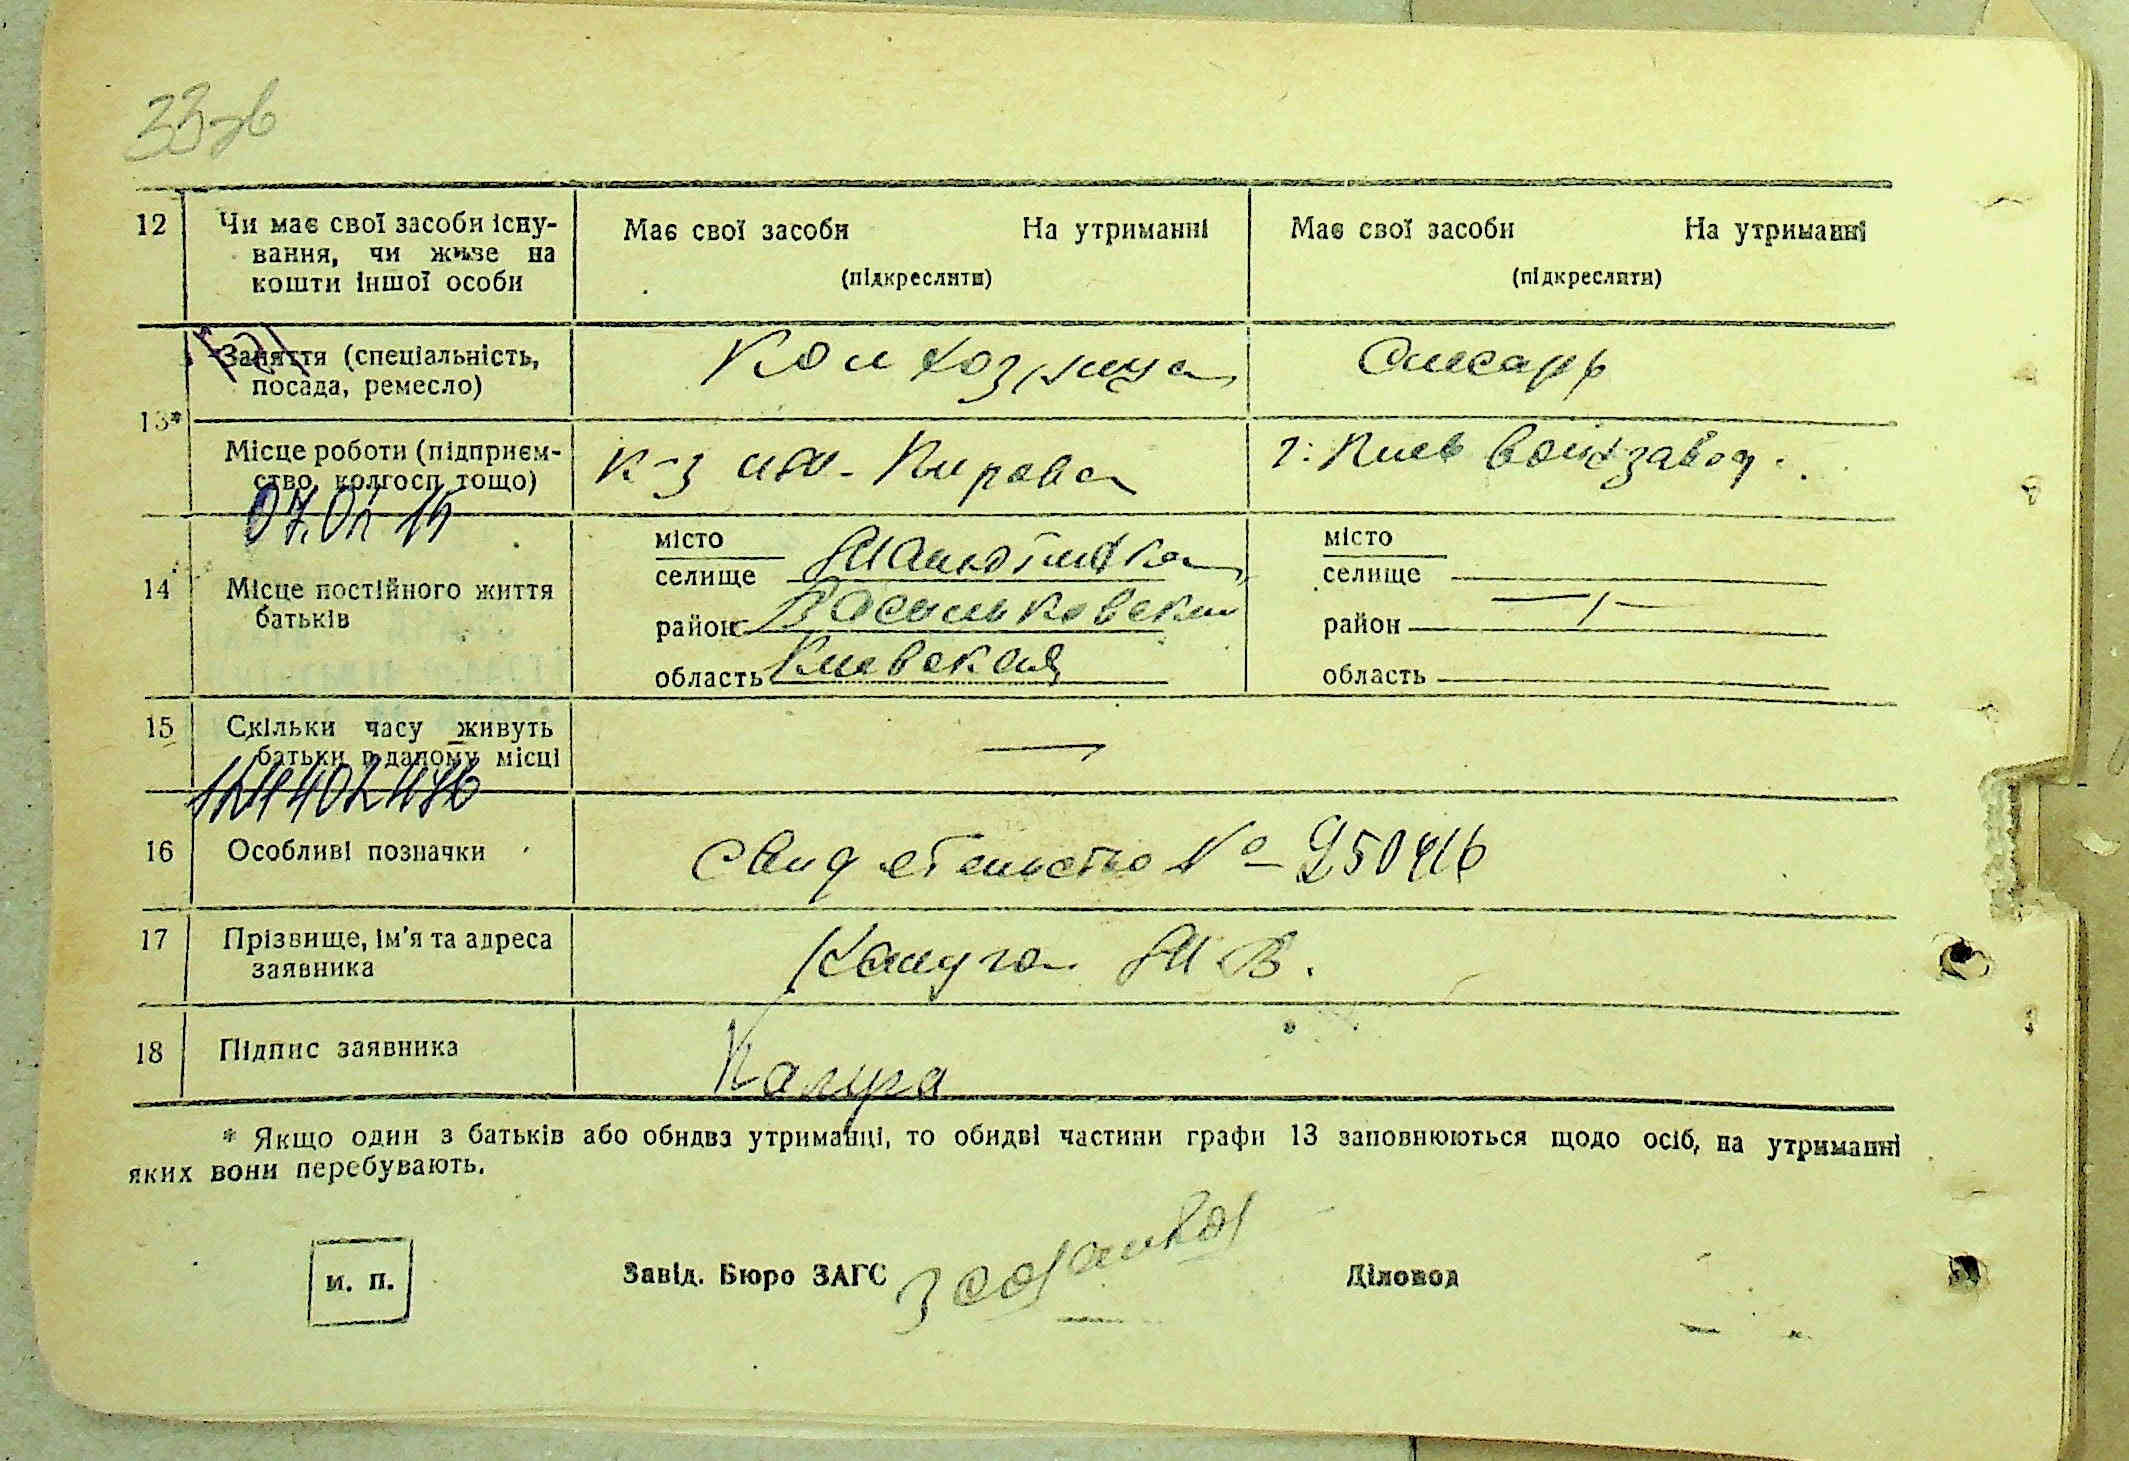 33 зв
12 Чи має свої засоби існу- Має свої засоби На утриманні Має свої засоби На утриманні
вання, чи живе на (підкреслити) (підкреслити)
кошти іншої особи
Заняття (спеціальність, Колхозница Слесарь
посада, ремесло)
13*
Місце роботи (підприєм- к-з им. Кирова г. Киев
ство, колгосп тощо)
місто місто
селище селище
14 Місце постійного життя район Васильковский район
батьків
область Киевская область
15 Скільки часу живуть —
батьки в даному місці
16 Особливі позначки свидетельство №
17 Прізвище, ім'я та адреса Калуга М В.
заявника
18 Підпис заявника Калуга
* Якщо один з батьків або обидва утриманці, то обидві частини графи 13 заповнюються щодо осіб, на утриманні
яких вони перебувають.
м. п. Завід. Бюро ЗАГС Діловод